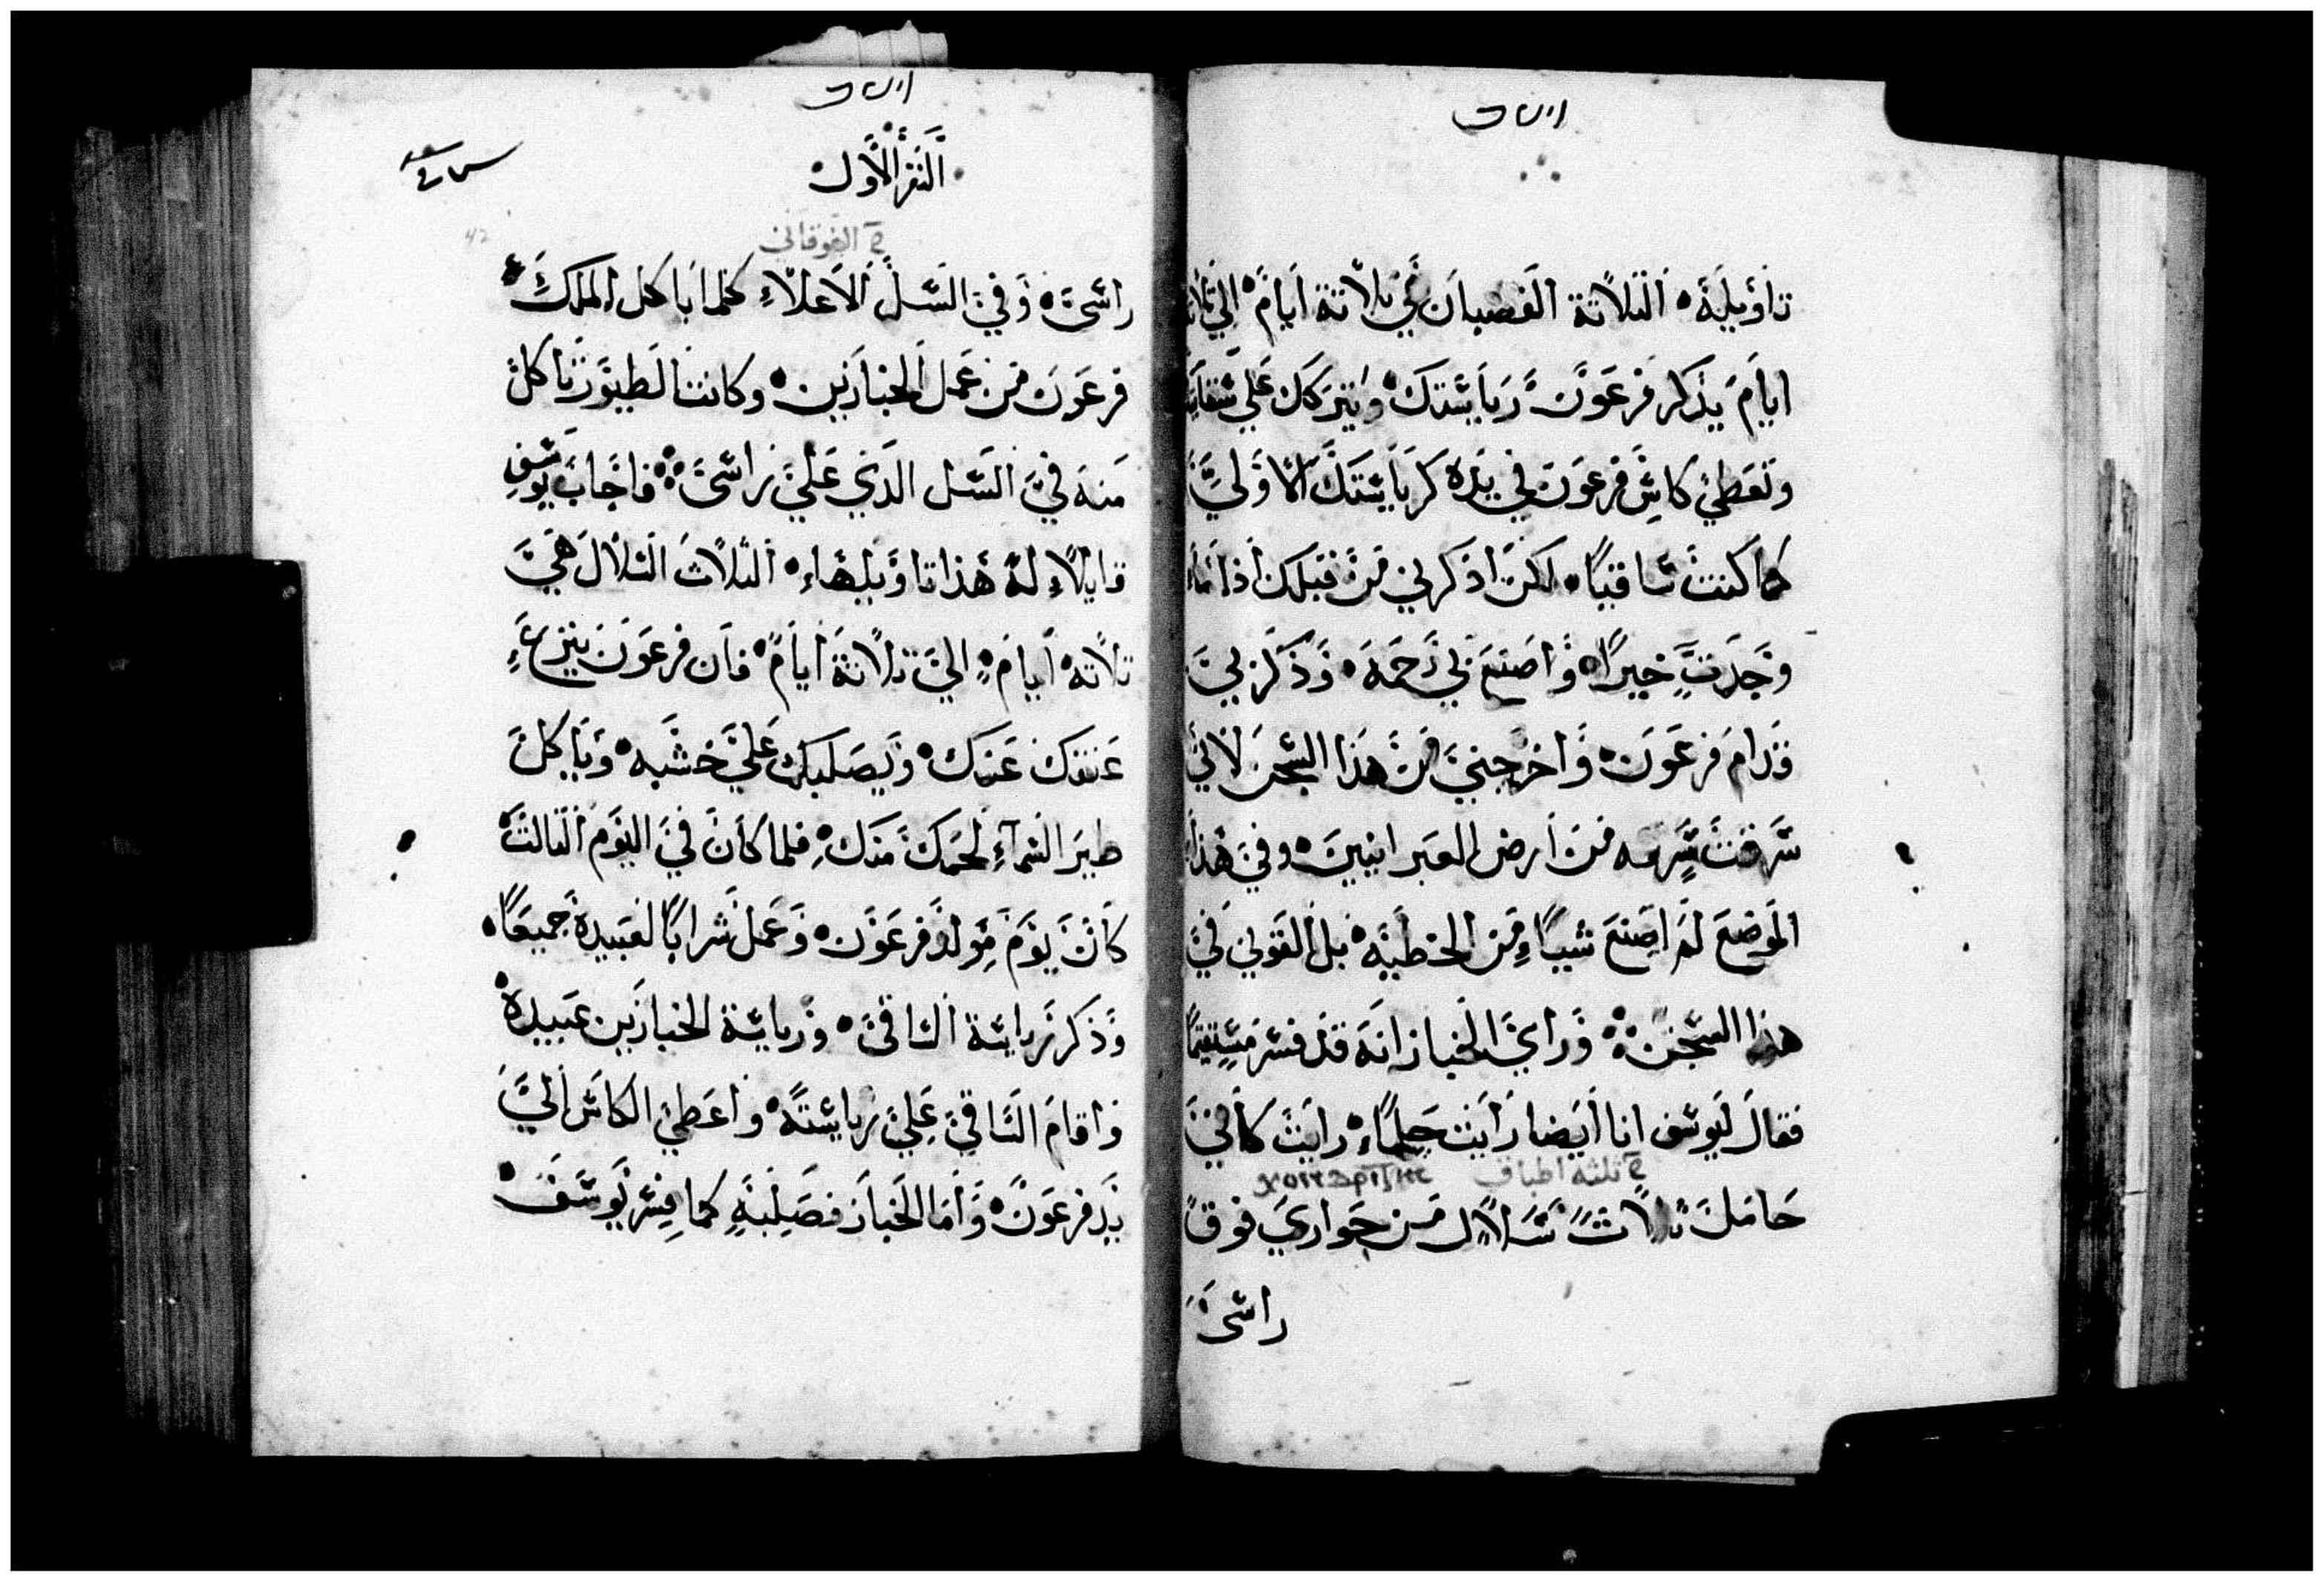 تاويله الثلاثة القضبان هي ثلاثة ايام الي
ايام يذكر فرعون رياستك ويتركك علي
وتعطي كاس فرعون في يده كرياستك الاولي
كما كنت ساقيا لكن اذكرني من قبلك اذا
وجدت خيرا واصنع بي رحمه وذكر بي
قدام فرعون واخرجني من هذا السجن لاني
سرقت سرقه من ارض العبرانيين وفي هذا
الموضع لم اصنع شيياً من الخطيه بل القوني في
هذا السجن وراي الخباز انه قد فسر مستقيما
فقال ليوسف انا ايضا رايت حلماء رايت كاني
ثلثه اطباق
حامل ثلاث سلال من حواري فوق
راسي
النفر الاول
الفوقاني
راسي وفي السل الاعلاء كلما ياكل الملك
فرعون من عمل الخبازين وكانت الطيور تاكل
منه في السل الذي علي راسي فاجاب يوسف
قايلاً له هذا تاويلهاء الثلاث السلال هي
ثلاثة ايام الي ثلاثة ايام فان فرعون ينزع
عنقك عنك ويصلبك علي خشبه وياكل
طير السماء لحمك منك فلما كان في اليوم الثالث
كان يوم مولد فرعون وعمل شرابا لعبيده جميعا
وذكر رياسة الساقي ورياسة الخبازين عبيده
واقام الساقي علي رياسته واعطي الكاس الي
يد فرعون واما الخباز فصلبه كما فسر يوسف